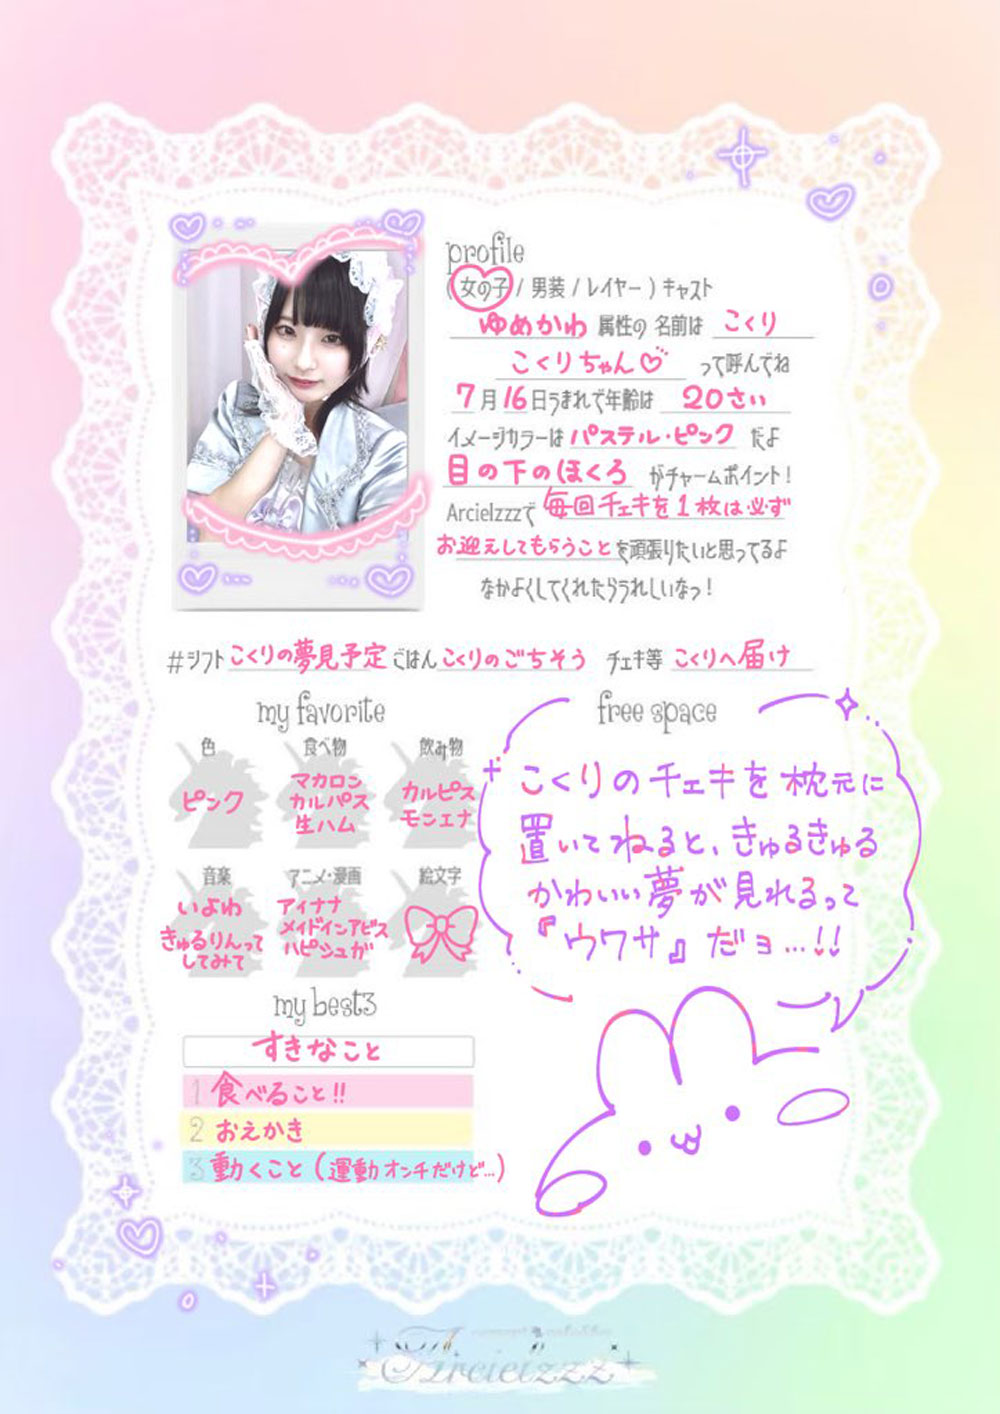 profile
(女の子 / 男装 / レイヤー) キャスト
ゆめかわ 属性の 名前は こくり
こくりちゃん♡ って呼んでね
7月16日うまれで年齢は 20さい
イメージカラーは パステル・ピンク だよ
目の下のほくろ がチャームポイント!
Arcielzzzで 毎回チェキを1枚は必ず
お迎えしてもらうこと を頑張りたいと思ってるよ
なかよくしてくれたらうれしいなっ!
#シフト こくりの夢見予定 ごはん こくりのごちそう チェキ等 こくりへ届け
my favorite
色
ピンク
食べ物
マカロン
カルパス
生ハム
飲み物
カルピス
モンエナ
音楽
いよわ
きゅるりんって
してみて
アニメ・漫画
アイナナ
メイドインアビス
ハピシュガ
絵文字
my best3
すきなこと
1 食べること!!
2 おえかき
3 動くこと (運動オンチだけど…)
free space
こくりのチェキを枕元に
置いてねると、きゅるきゅる
かわいい夢が見れるって
『ウワサ』だヨ…!!
Arcielzzz